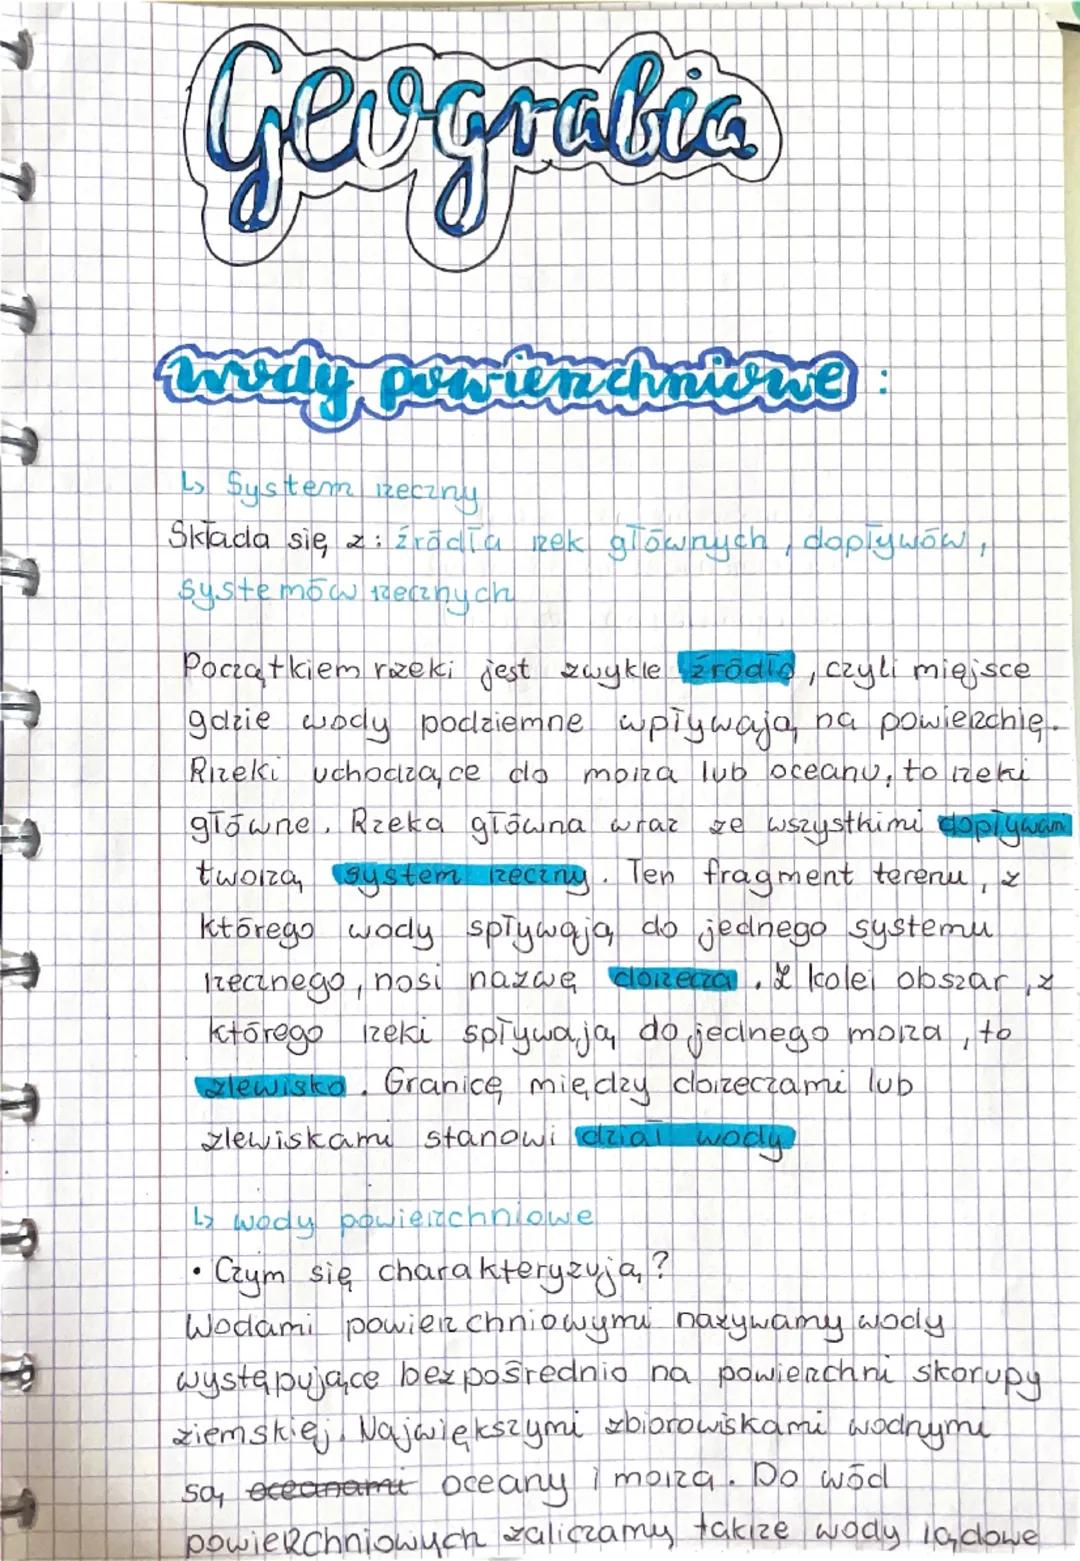 Geografia
wody powierzchniowe :
↳ System rzeczny
Składa się z: źródła rzek głównych, dopływów,
systemów rzecznych
Początkiem rzeki jest zwykle źródło, czyli miejsce
gdzie wody podziemne wpływają na powierzchię.
Rzeki uchodzące do morza lub oceanu, to rzeki
główne. Rzeka główna wraz ze wszystkimi dopływam
tworzą system rzeczny. Ten fragment terenu, z
którego wody spływają do jednego systemu
rzecznego, nosi nazwę dorzecza. Z kolei obszar, z
którego rzeki spływają do jednego morza, to
zlewisko. Granicę między dorzeczami lub
zlewiskami stanowi dział wody
↳ wody powierzchniowe
• Czym się charakteryzują?
Wodami powierzchniowymi nazywamy wody
występujące bezpośrednio na powierzchni skorupy
ziemskiej. Największymi zbiorowiskami wodnymi
są oceanami oceany i morza. Do wód
powierzchniowych zaliczamy także wody lądowe